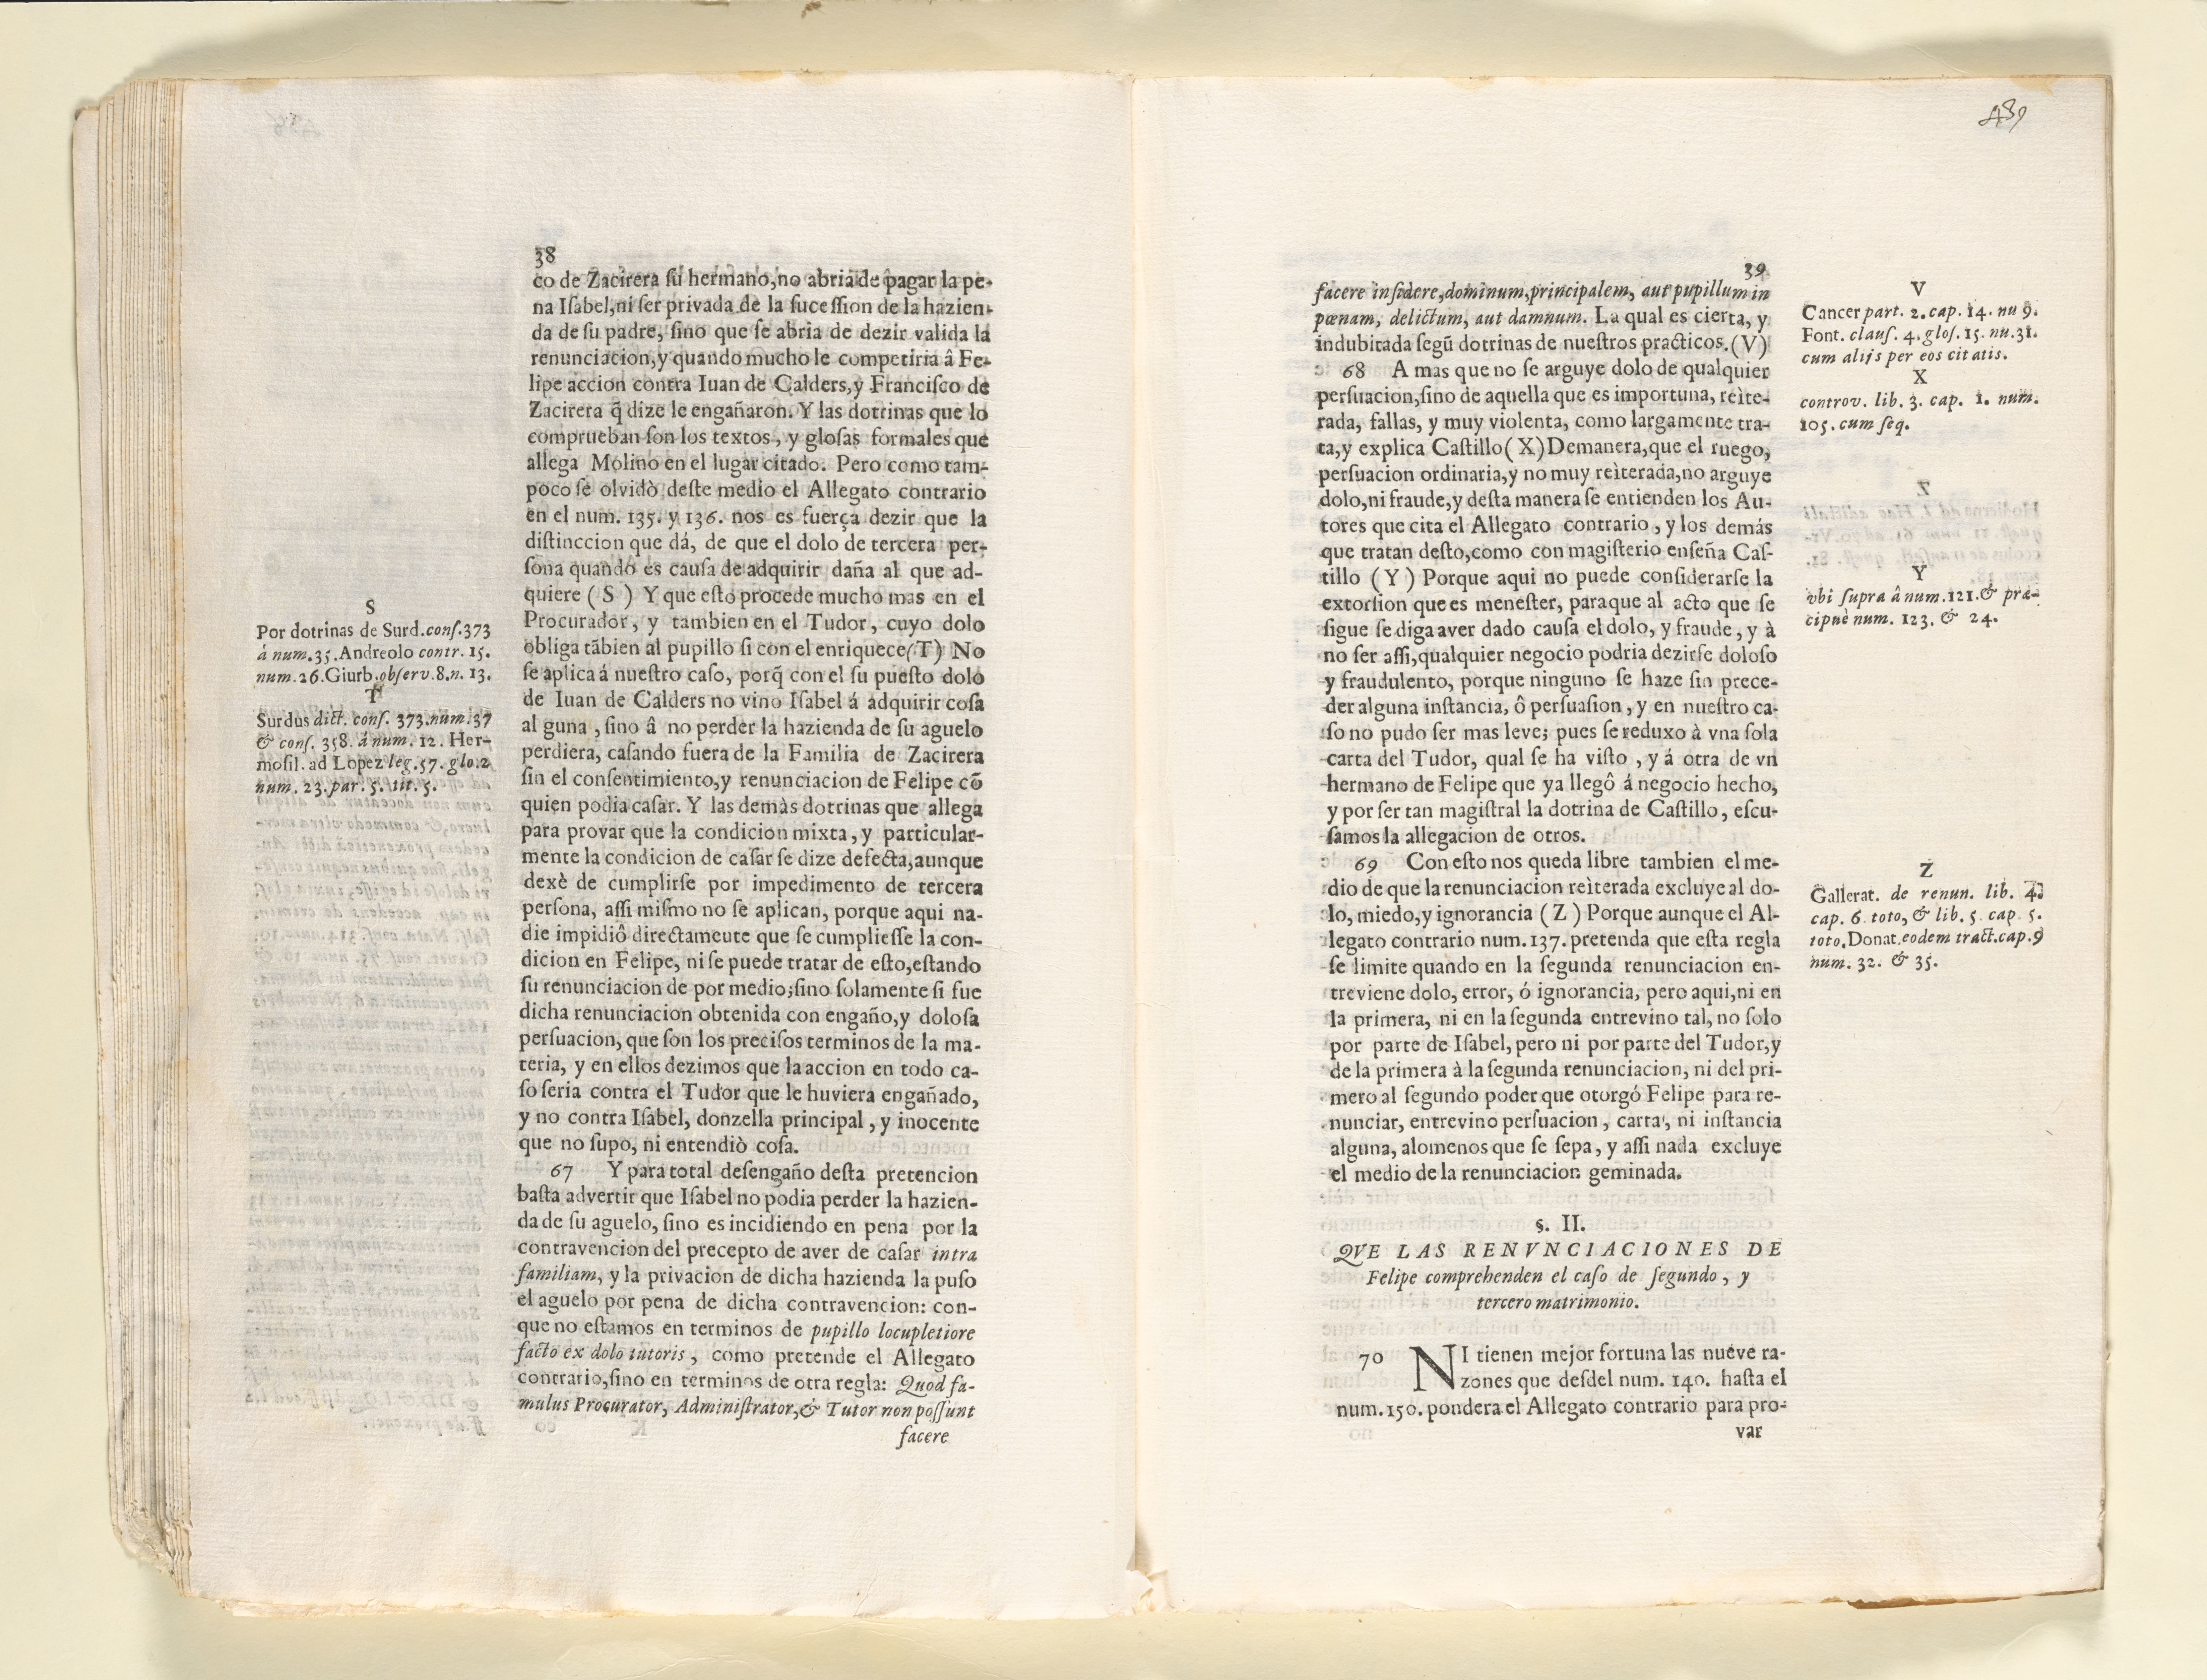 38
co de Zacirera su hermano,no abria de pagar la pe-
na Isabel,ni ser privada de la sucession de la hazien-
da de su padre, sino que se abria de dezir valida la
renunciacion,y quando mucho le competiria â Fe-
lipe accion contra Iuan de Calders,y Francisco de
Zacirera q̃ dize le engañaron. Y las dotrinas que lo
comprueban son los textos, y glosas formales que
allega Molino en el lugar citado. Pero como tam-
poco se olvidò deste medio el Allegato contrario
en el num. 135. y 136. nos es fuerça dezir que la
distinccion que dá, de que el dolo de tercera per-
sona quando es causa de adquirir daña al que ad-
quiere ( S ) Y que esto procede mucho mas en el
Procurador, y tambien en el Tudor, cuyo dolo
obliga tãbien al pupillo si con el enriquece(T) No
se aplica á nuestro caso, porq̃ con el su puesto dolo
de Iuan de Calders no vino Isabel á adquirir cosa
al guna , sino â no perder la hazienda de su aguelo
perdiera, casando fuera de la Familia de Zacirera
sin el consentimiento,y renunciacion de Felipe cõ
quien podia casar. Y las demàs dotrinas que allega
para provar que la condicion mixta, y particular-
mente la condicion de casar se dize defecta,aunque
dexè de cumplirse por impedimento de tercera
persona, assi mismo no se aplican, porque aqui na-
die impidiô directameute que se cumpliesse la con-
dicion en Felipe, ni se puede tratar de esto,estando
su renunciacion de por medio;sino solamente si fue
dicha renunciacion obtenida con engaño,y dolosa
persuacion, que son los precisos terminos de la ma-
teria, y en ellos dezimos que la accion en todo ca-
so seria contra el Tudor que le huviera engañado,
y no contra Isabel, donzella principal , y inocente
que no supo, ni entendiò cosa.
67 Y para total desengaño desta pretencion
basta advertir que Isabel no podia perder la hazien-
da de su aguelo, sino es incidiendo en pena por la
contravencion del precepto de aver de casar intra
familiam, y la privacion de dicha hazienda la puso
el aguelo por pena de dicha contravencion: con-
que no estamos en terminos de pupillo locupletiore
facto ex dolo tutoris , como pretende el Allegato
contrario,sino en terminos de otra regla: Quod fa-
mulus Procurator, Administrator,& Tutor non possunt
facere
S
Por dotrinas de Surd.cons.373
á num.35.Andreolo contr. 15.
num.26.Giurb.observ.8.n. 13.
T
Surdus dict. cons. 373.num.37
& cons. 358. á num. 12. Her-
mosil. ad Lopez leg.57. glo.2
num. 23.par. 5. tit. 5.
439
39
facere insidere,dominum,principalem, aut pupillum in
pœnam, delictum, aut damnum. La qual es cierta, y
indubitada segũ dotrinas de nuestros practicos.(V)
68 A mas que no se arguye dolo de qualquier
persuacion,sino de aquella que es importuna, reìte-
rada, fallas, y muy violenta, como largamente tra-
ta,y explica Castillo(X)Demanera,que el ruego,
persuacion ordinaria,y no muy reìterada,no arguye
dolo,ni fraude,y desta manera se entienden los Au-
tores que cita el Allegato contrario , y los demás
que tratan desto,como con magisterio enseña Cas-
tillo (Y) Porque aqui no puede considerarse la
extorsion que es menester, paraque al acto que se
sigue se diga aver dado causa el dolo, y fraude , y à
no ser assi,qualquier negocio podria dezirse doloso
y fraudulento, porque ninguno se haze sin prece-
der alguna instancia, ô persuasion , y en nuestro ca-
so no pudo ser mas leve; pues se reduxo à vna sola
carta del Tudor, qual se ha visto , y á otra de vn
hermano de Felipe que ya llegô á negocio hecho,
y por ser tan magistral la dotrina de Castillo, escu-
samos la allegacion de otros.
69 Con esto nos queda libre tambien el me-
dio de que la renunciacion reìterada excluye al do-
lo, miedo,y ignorancia (Z) Porque aunque el Al-
legato contrario num. 137. pretenda que esta regla
se limite quando en la segunda renunciacion en-
treviene dolo, error, ó ignorancia, pero aqui,ni en
la primera, ni en la segunda entrevino tal, no solo
por parte de Isabel, pero ni por parte del Tudor,y
de la primera à la segunda renunciacion, ni del pri-
mero al segundo poder que otorgó Felipe para re-
nunciar, entrevino persuacion , carta, ni instancia
alguna, alomenos que se sepa, y assi nada excluye
el medio de la renunciacion geminada.
§. II.
QVE LAS RENVNCIACIONES DE
Felipe comprehenden el caso de segundo, y
tercero matrimonio.
70 NI tienen mejor fortuna las nueve ra-
zones que desdel num. 140. hasta el
num. 150. pondera el Allegato contrario para pro-
var
V
Cancer part. 2. cap. 14. nu 9.
Font. claus. 4. glos. 15. nu.31.
cum alijs per eos citatis.
X
controv. lib. 3. cap. 1. num.
105. cum seq.
Y
vbi supra â num.121.& præ-
cipuè num. 123. & 24.
Z
Gallerat. de renun. lib. 4.
cap. 6. toto, & lib. 5. cap. 5.
toto.Donat.eodem tract.cap.9
num. 32. & 35.